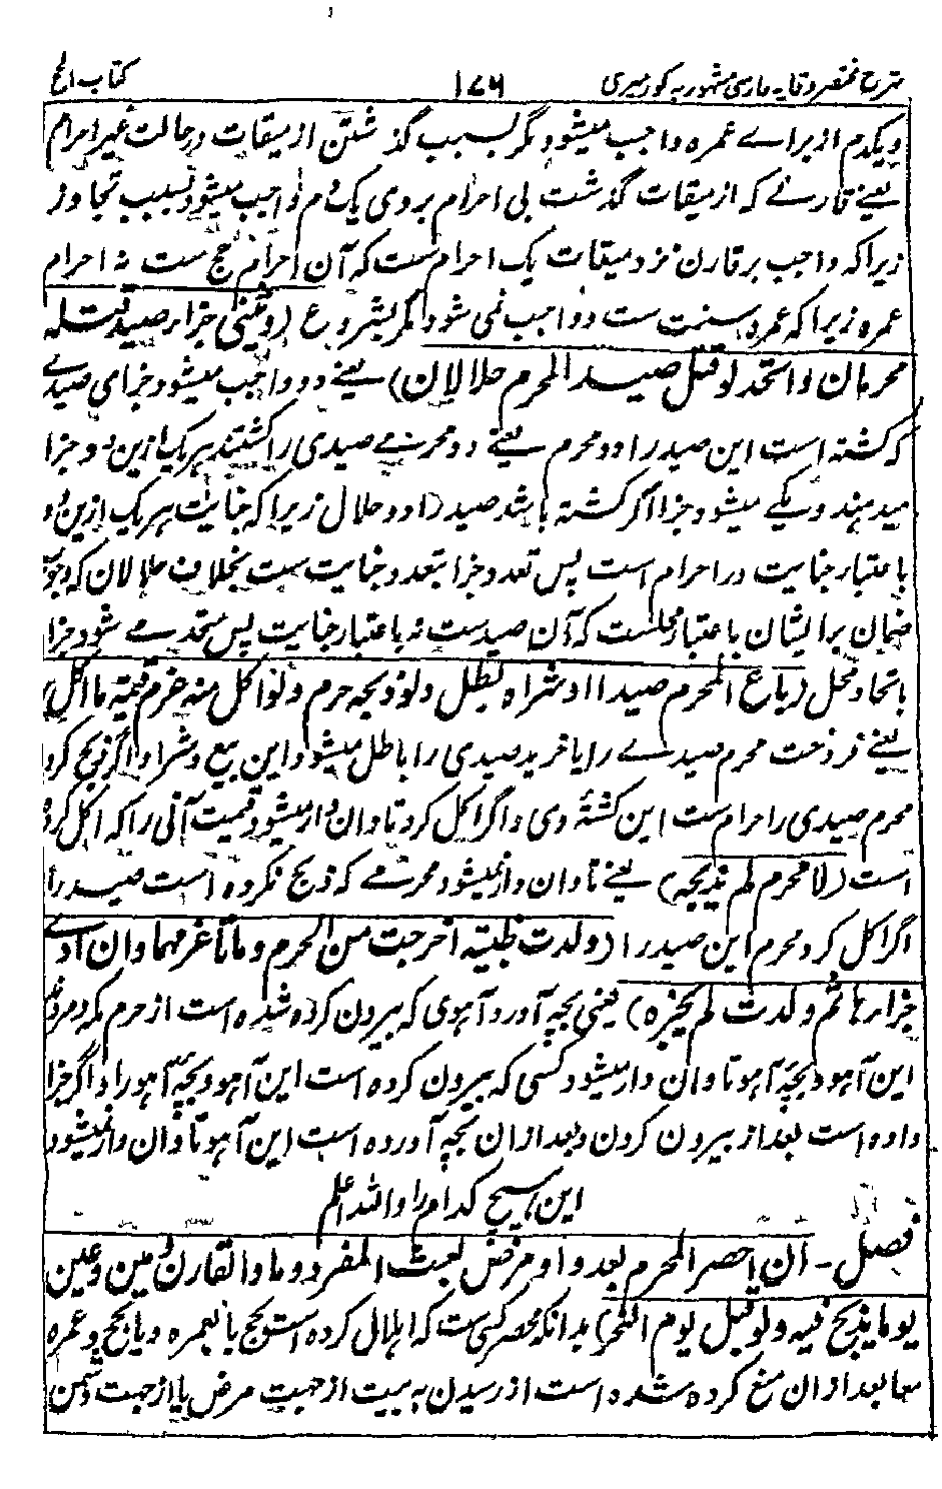 شرح مختصر وقایه فارسی مشهور به کور میری ۱۷۶ کتاب الحج
ویکدم از براے عمره واجب میشود مگر بسبب گذشتن از میقات در حالت غیر احرام
یعنے قارنے که از میقات گذشت بی احرام بر وی یک دم واجب میشود بسبب تجاوز
زیرا که واجب بر قارن نزد میقات یک احرام ست که آن احرام حج ست نه احرام
عمره زیرا که عمره سنت ست و واجب نمی شود مگر بشروع (ویثنی جزاء صید قتله
محرمان واتحد لو قتل صید الحرم حلالان) یعنے دو واجب میشود جزای صیدے
که کشته است این صید را دو محرم یعنے دو محرمے صیدی را کشتند هر یک ازین دو جزا
میدهند و یکے میشود جزا اگر کشته باشد صید را دو حلال زیرا که جنایت هر یک ازین دو
باعتبار جنایت در احرام است پس تعدد جزا بتعدد جنایت ست بخلاف حلالان که وجوب
ضمان بر ایشان باعتبار محلست که آن صید ست نه باعتبار جنایت پس متحد مے شود جزا
باتحاد محل (باع المحرم صیدا او شراه بطل ولو ذبحه حرم ولو اکل منه غرم قیمة ما اکل)
یعنے فروخت محرم صیدے را یا خرید صیدی را باطل میشود این بیع و شرا و اگر ذبح کرد
محرم صیدی را حرام ست این کشتۀ وی و اگر اکل کرد تاوان دار میشود قیمت آنی را که اکل کرده
است (لا محرم لم یذبحه) یعنے تاوان دار نمیشود محرمے که ذبح نکرده است صید را
اگر اکل کرد محرم این صید را (ولدت ظبیة اخرجت من الحرم وماتا غرمهما وان ادے
جزاءها ثم ولدت لم یجزه) یعنی بچه آورد آهوی که بیرون کرده شده است از حرم مکه و مردند
این آهو و بچۀ آهو تاوان دار میشود کسی که بیرون کرده است این آهو و بچۀ آهو را و اگر جزا
داده است بعد از بیرون کردن و بعد ازان بچه آورده است این آهو تاوان دار نمیشود
این هیچ کدام را والله اعلم
فصل - ان احصر المحرم بعدو او مرض بعث المفرد دما والقارن دمین وعین
یوما یذبح فیه ولو قبل یوم النحر) بدانکه محصر کسی ست که اهلال کرده است بحج یا بعمره و یا بحج و عمره
معا بعد ازان منع کرده شده است از رسیدن به بیت از جهت مرض یا از جهت دشمن